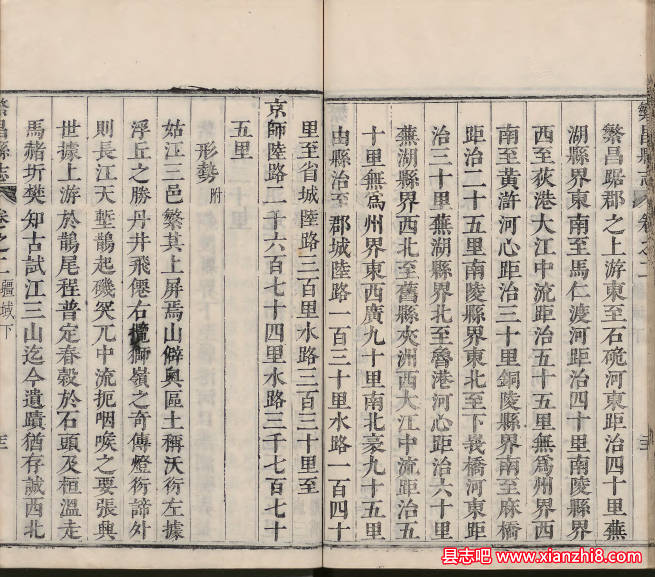 繁昌縣志 卷之二
繁昌踞郡之上游東至石硊河東距治四十里蕪
湖縣界東南至馬仁渡河距治四十里南陵縣界
西至荻港大江中流距治五十五里無爲州界西
南至黃滸河心距治三十里銅陵縣界南至麻橋
距治二十五里南陵縣界東北至下義橋河東距
治三十里蕪湖縣界北至魯港河心距治六十里
蕪湖縣界西北至舊縣夾洲西大江中流距治五
十里無爲州界東西廣九十里南北袤九十五里
由縣治至郡城陸路一百三十里水路一百四十
里至省城陸路三百里水路三百三十里至
京師陸路二千六百七十四里水路三千七百七十
五里
形勢附
姑江三邑繁其上屏焉山僻奧區土稱沃衍左據
浮丘之勝丹井飛僊右攬獅嶺之奇傳燈衍諦外
則長江天塹鵲起磯突兀中流扼咽喉之要張興
世據上游於鵲尾程普定春榖於石頭及桓溫走
馬赭圻樊知古試江三山迄今遺蹟猶存誠西北
繁昌縣志 卷之二 疆域下
县志吧 www.xianzhi8.com